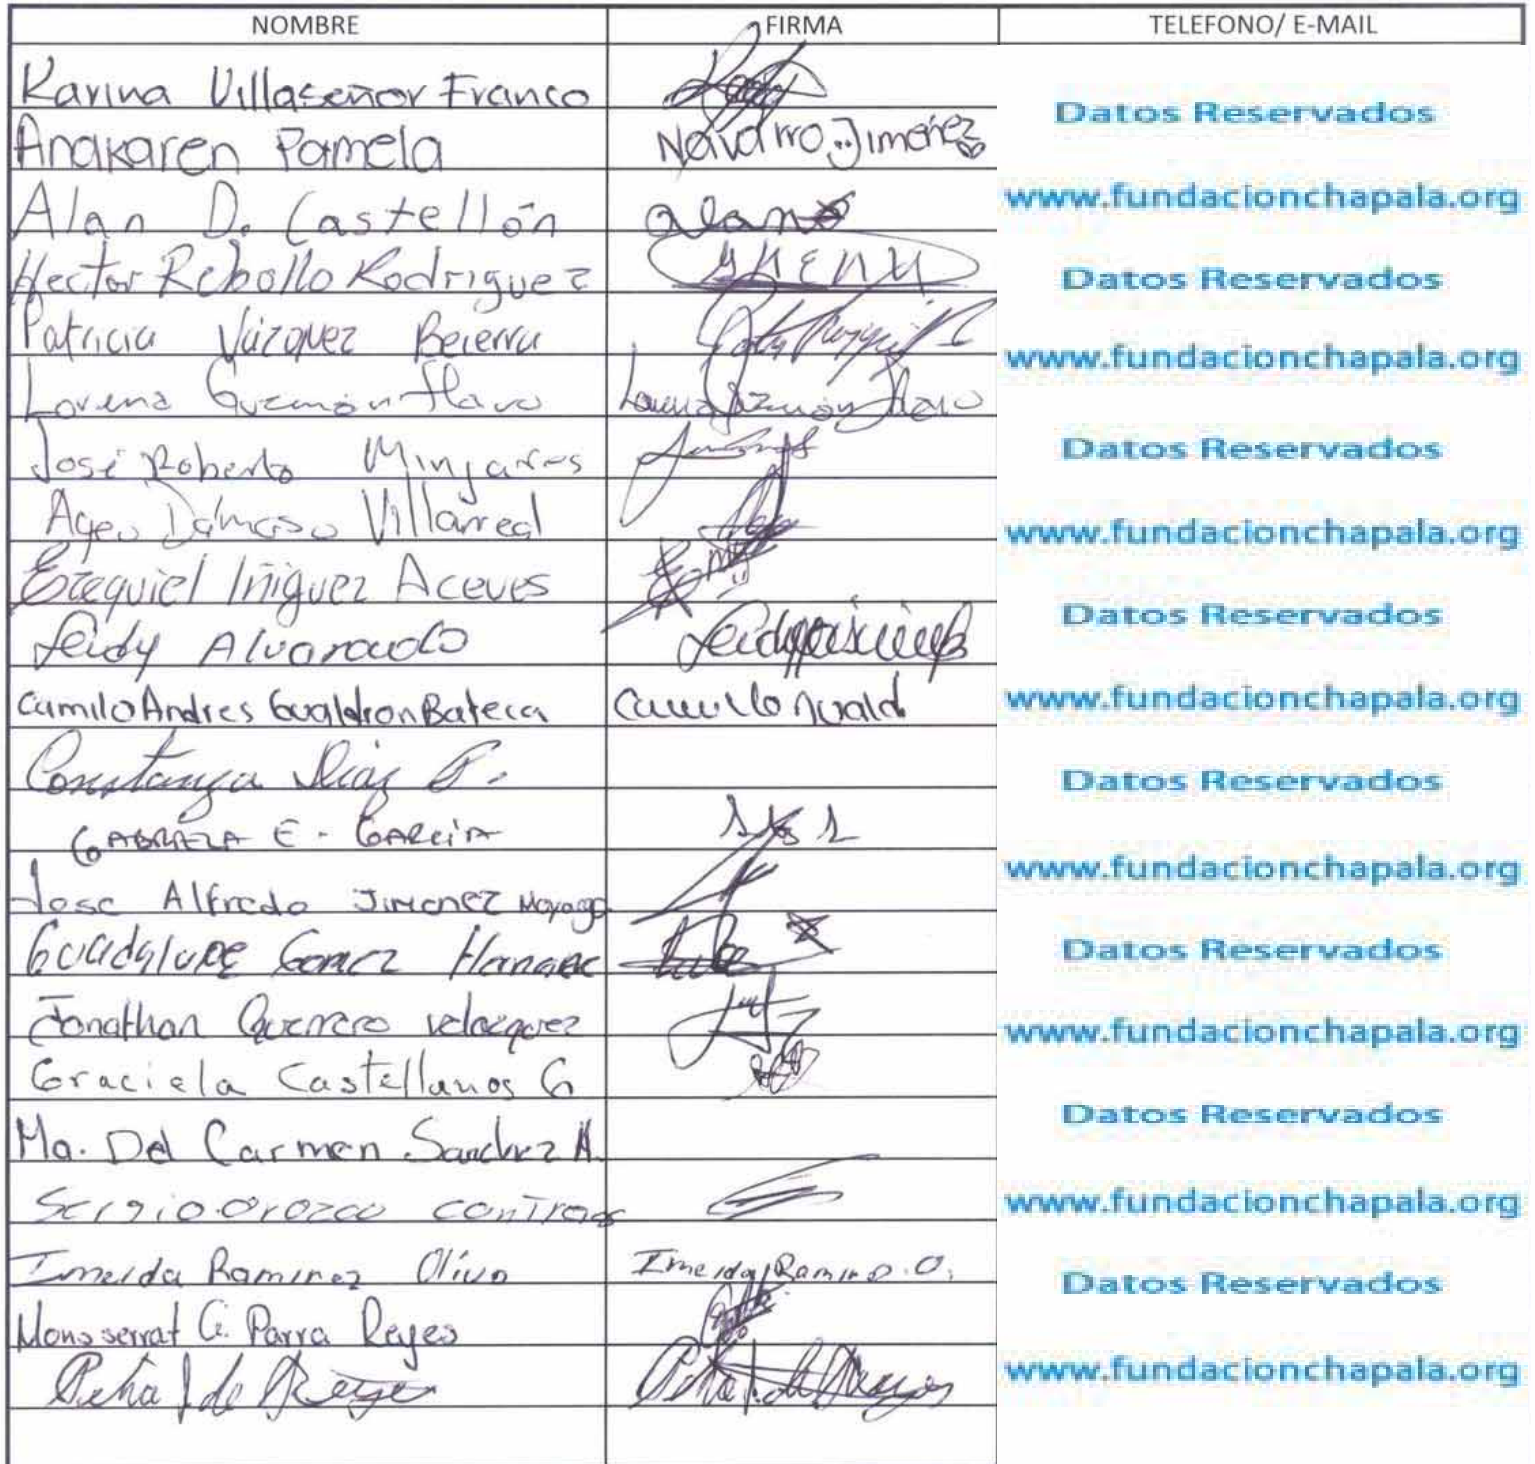 NOMBRE FIRMA TELEFONO/ E-MAIL
Karina Villaseñor Franco
Datos Reservados
Anakaren Pamela Navarro Jimenez
Alan D. Castellón alan
www.fundacionchapala.org
Hector Rebollo Rodriguez
Datos Reservados
Patricia Vázquez Becerra
www.fundacionchapala.org
Lorena Guzmán Haro Lorena Guzmán Haro
José Roberto Minjares
Datos Reservados
Ageo Dámaso Villarreal
www.fundacionchapala.org
Ezequiel Iñiguez Aceves
Leidy Alvarado
Datos Reservados
Camilo Andres Gualdron Bateca
www.fundacionchapala.org
Constanza Diaz P.
Datos Reservados
GABRIELA E. GARCÍA
Jose Alfredo Jimenez
www.fundacionchapala.org
Guadalupe Gomez
Datos Reservados
Jonathan Guerrero Velazquez
www.fundacionchapala.org
Graciela Castellanos G
Ma. Del Carmen Sanchez A.
Datos Reservados
Sergio Orozco contreras
www.fundacionchapala.org
Imelda Ramirez Olivo Imelda Ramirez O.
Datos Reservados
Monsserrat G. Parra Reyes
www.fundacionchapala.org
de Reyes